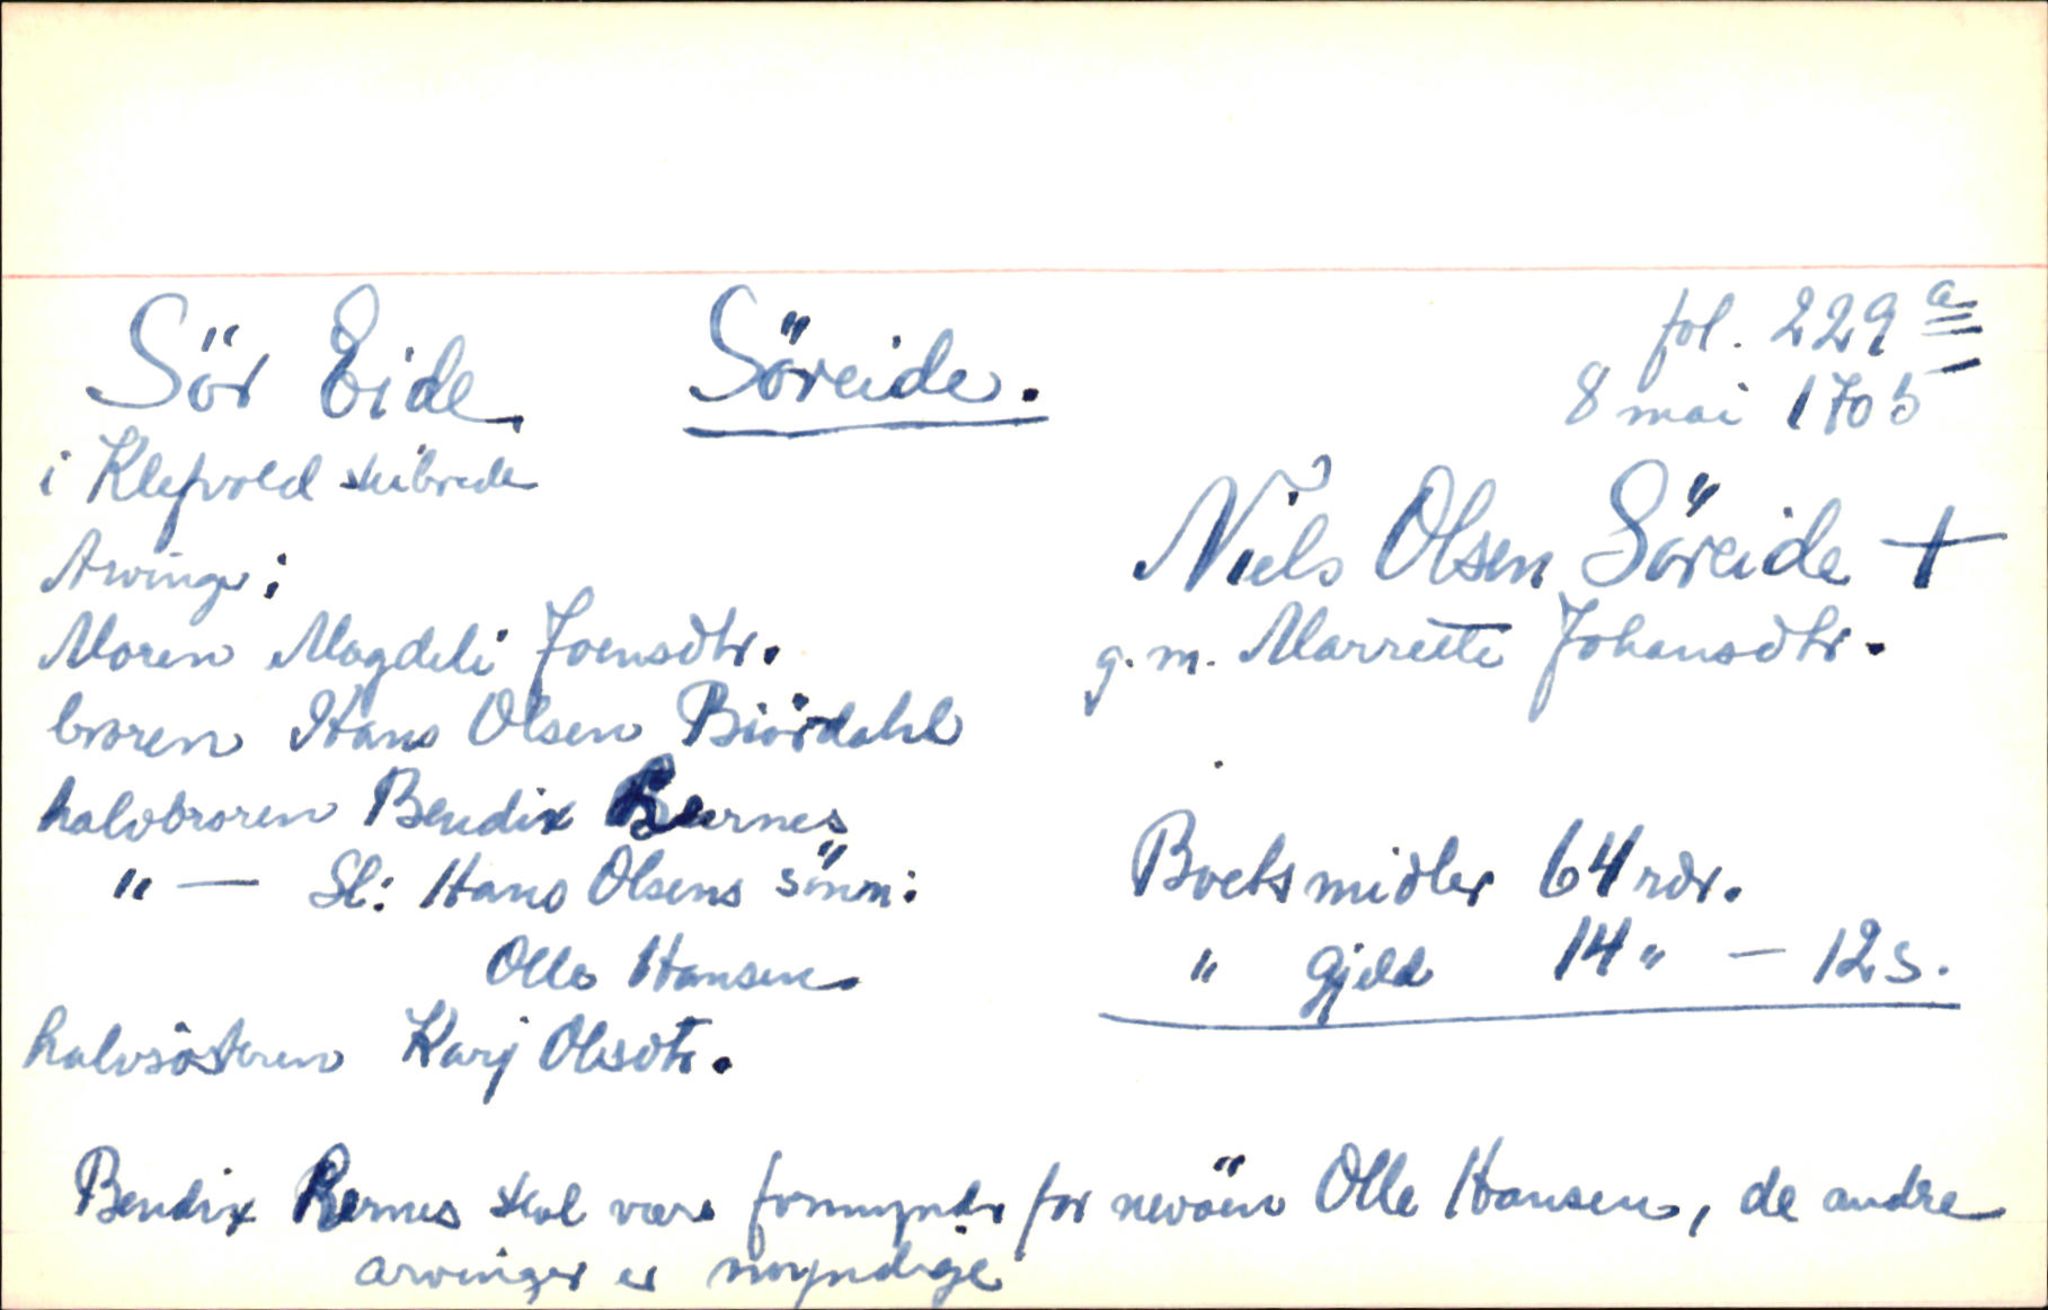 Sör Eide Söreide. fol. 229 a
8 mai 1705
i Klepvold skibrede
Niels Olsen Söreide +
g. m. Marrete Johansdtr.
Arvinger:
Moren Magdeli Joensdtr.
broren Hans Olsen Biördahl
halvbroren Bendix Bernes
" — Sl: Hans Olsens sönn:
Olle Hansen.
halvsösteren Karj Olsdtr.
Boets midler 64 rdr.
" gjeld 14 " — 12 s.
Bendix Bernes skal være formynder for nevöen Olle Hansen, de andre
arvinger er myndige